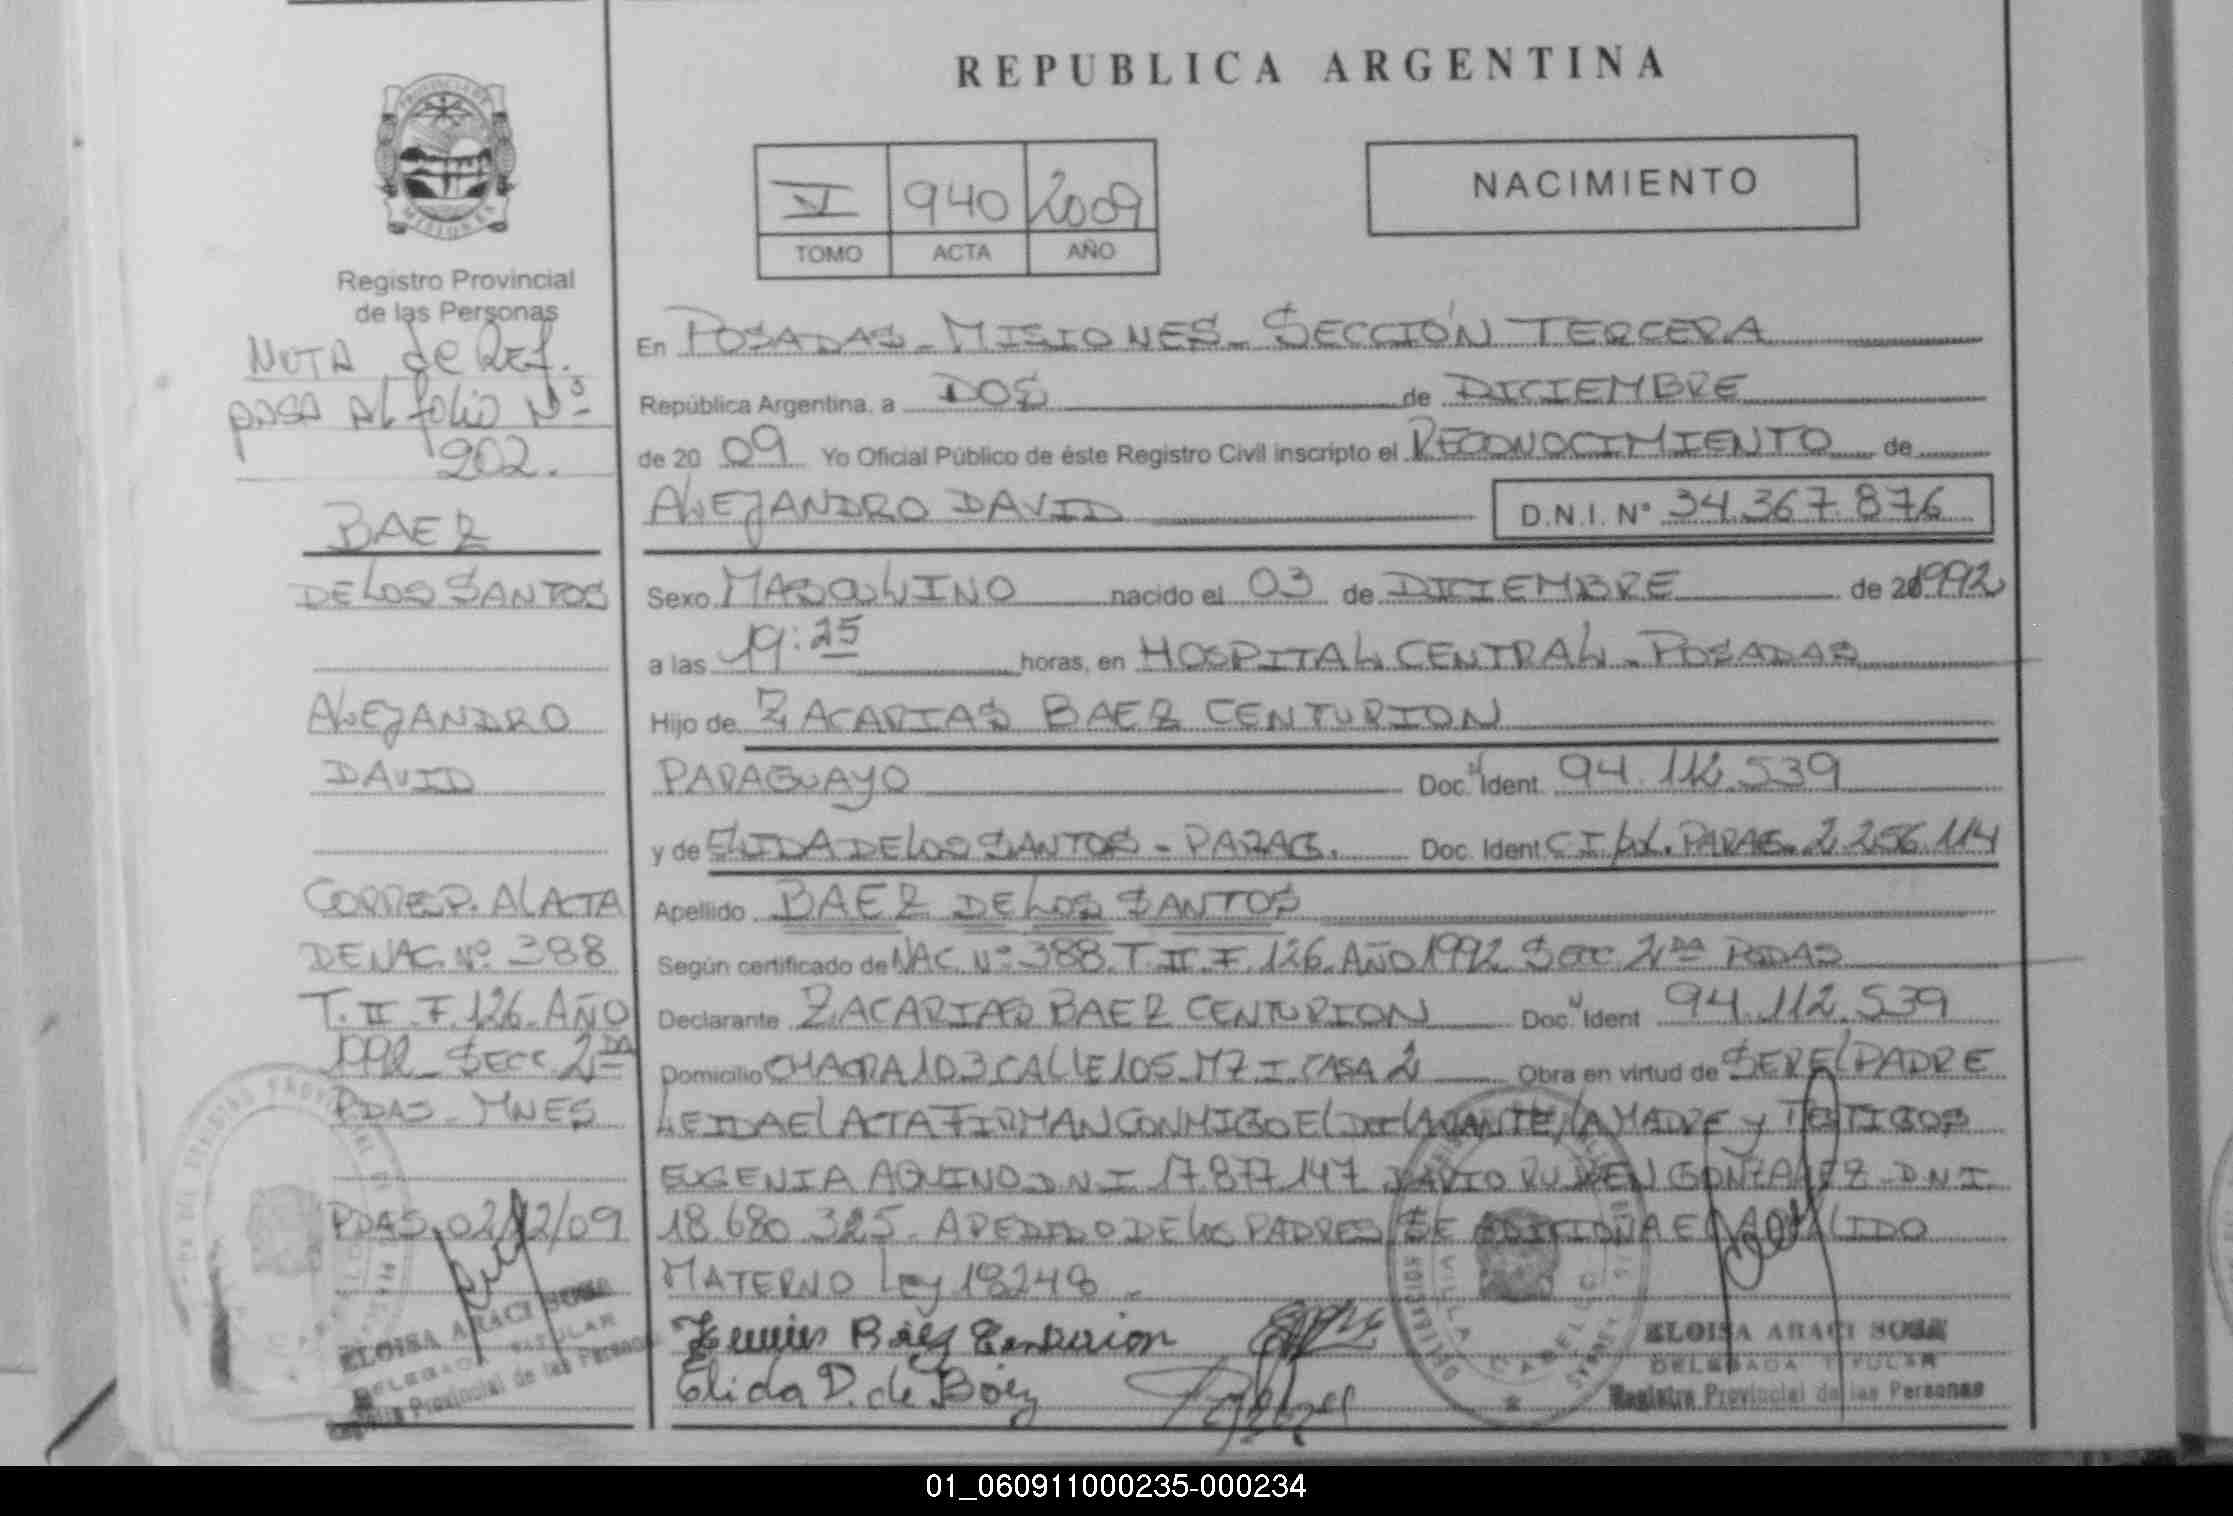 REPUBLICA ARGENTINA
PROVINCIA DE MISIONES
Registro Provincial
de las Personas
NOTA de Ref.
pasa al folio Nº
202.
BAEZ
DE LOS SANTOS
ALEJANDRO
DAVID
CORRESP. AL ACTA
DE NAC. Nº 388
T. II F. 126 AÑO
1992 - SECC. 2DA
PDAS - MNES
PDAS. 02/12/09
ELOISA ARACI SOSA
DELEGADA TITULAR
Registro Provincial de las Personas
VI 940 2009
TOMO ACTA AÑO
NACIMIENTO
En POSADAS - MISIONES - SECCIÓN TERCERA
República Argentina, a DOS de DICIEMBRE
de 20 09 Yo Oficial Público de éste Registro Civil inscripto el RECONOCIMIENTO de
ALEJANDRO DAVID D.N.I. Nº 34.367.876
Sexo MASCULINO nacido el 03 de DICIEMBRE de 1992
a las 19:25 horas, en HOSPITAL CENTRAL - POSADAS
Hijo de ZACARIAS BAEZ CENTURION
PARAGUAYO Doc. Ident. 94.112.539
y de ELIDA DE LOS SANTOS - PARAG. Doc. Ident. C I pol. PARAG. 2.256.114
Apellido BAEZ DE LOS SANTOS
Según certificado de NAC. Nº 388. T. II. F. 126. AÑO 1992 SECC 2DA PDAS
Declarante ZACARIAS BAEZ CENTURION Doc. Ident 94.112.539
Domicilio CHACRA 103 CALLE 105 MZ I CASA 2 Obra en virtud de SER EL PADRE
LEIDA EL ACTA FIRMAN CONMIGO EL DECLARANTE, LA MADRE y TESTIGOS
EUGENIA AQUINO D N I 17.877.147 RUBEN GONZALEZ - D N I.
18.680.325 - A PEDIDO DE LOS PADRES SE ADICIONA EL APELLIDO
MATERNO Ley 18248 -
Baez Centurion
Elida D. de Báez
ELOISA ARACI SOSA
DELEGADA TITULAR
Registro Provincial de las Personas
VILLA CABELLO
01_060911000235-000234